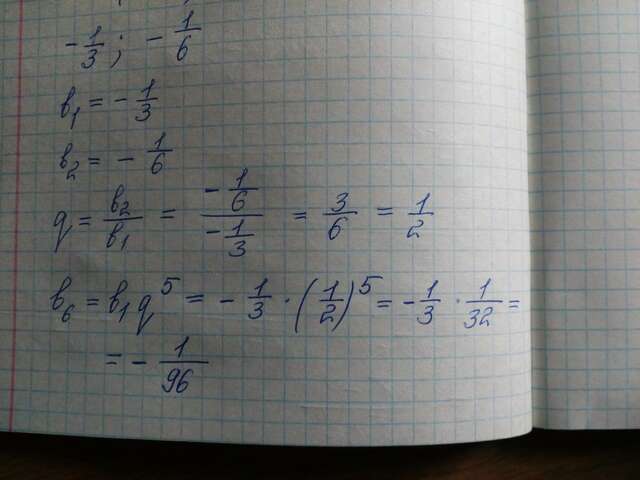 -1/3; -1/6
b₁ = -1/3
b₂ = -1/6
q = b₂/b₁ = (-1/6)/(-1/3) = 3/6 = 1/2
b₆ = b₁q⁵ = -1/3 · (1/2)⁵ = -1/3 · 1/32 =
= -1/96